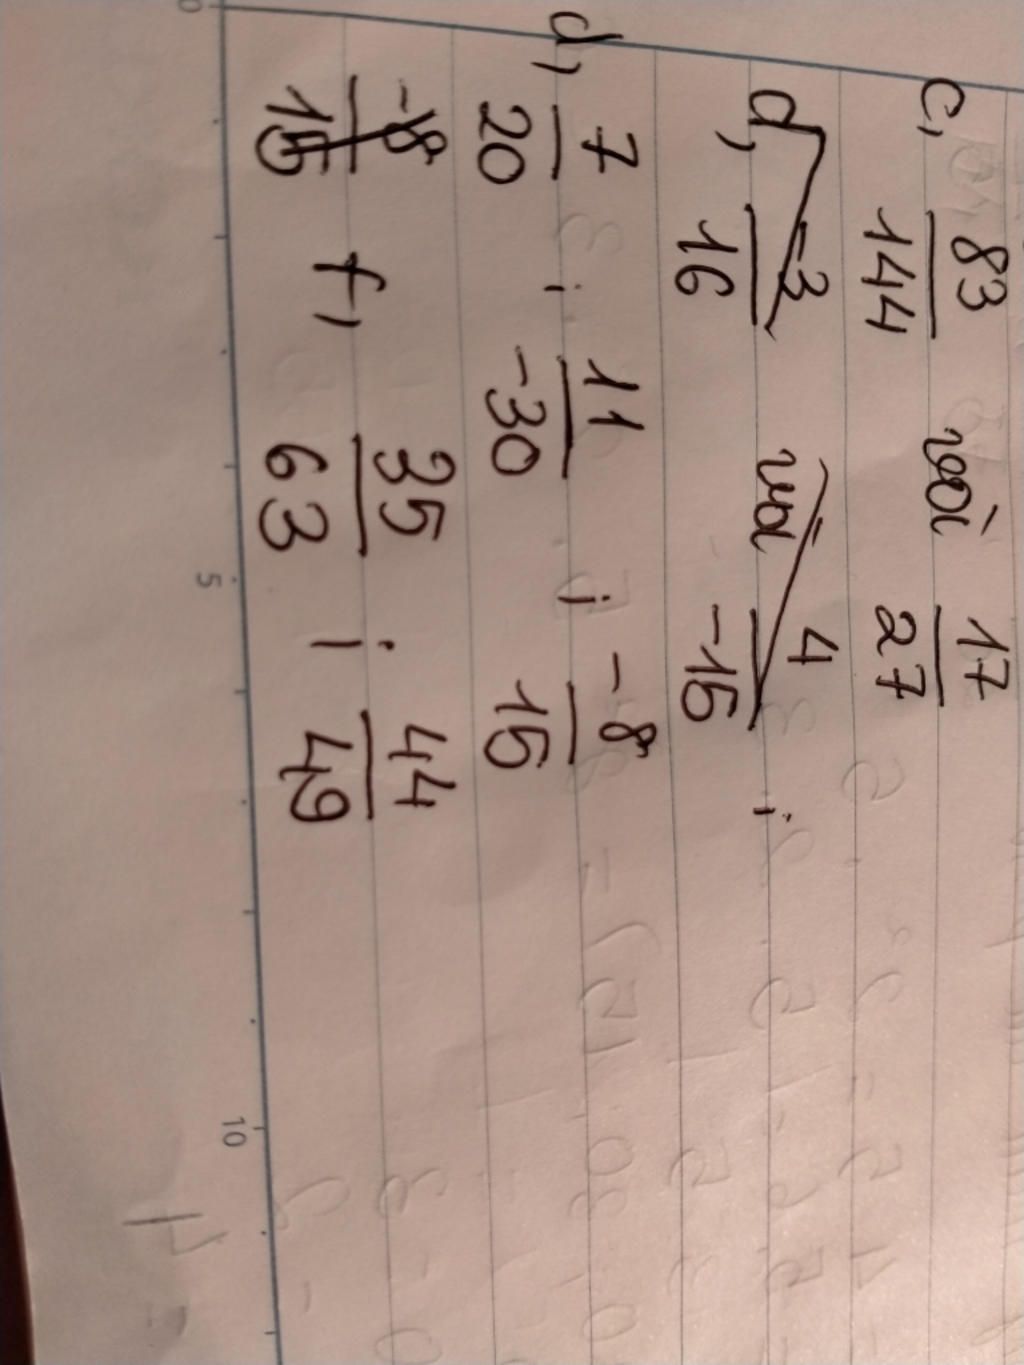 c, 83/144 và 17/27
d, -3/16 và 4/-15 ;
d, 7/20 ; 11/-30 ; -8/15
-8/15 f, 35/63 ; 44/49
0 5 10